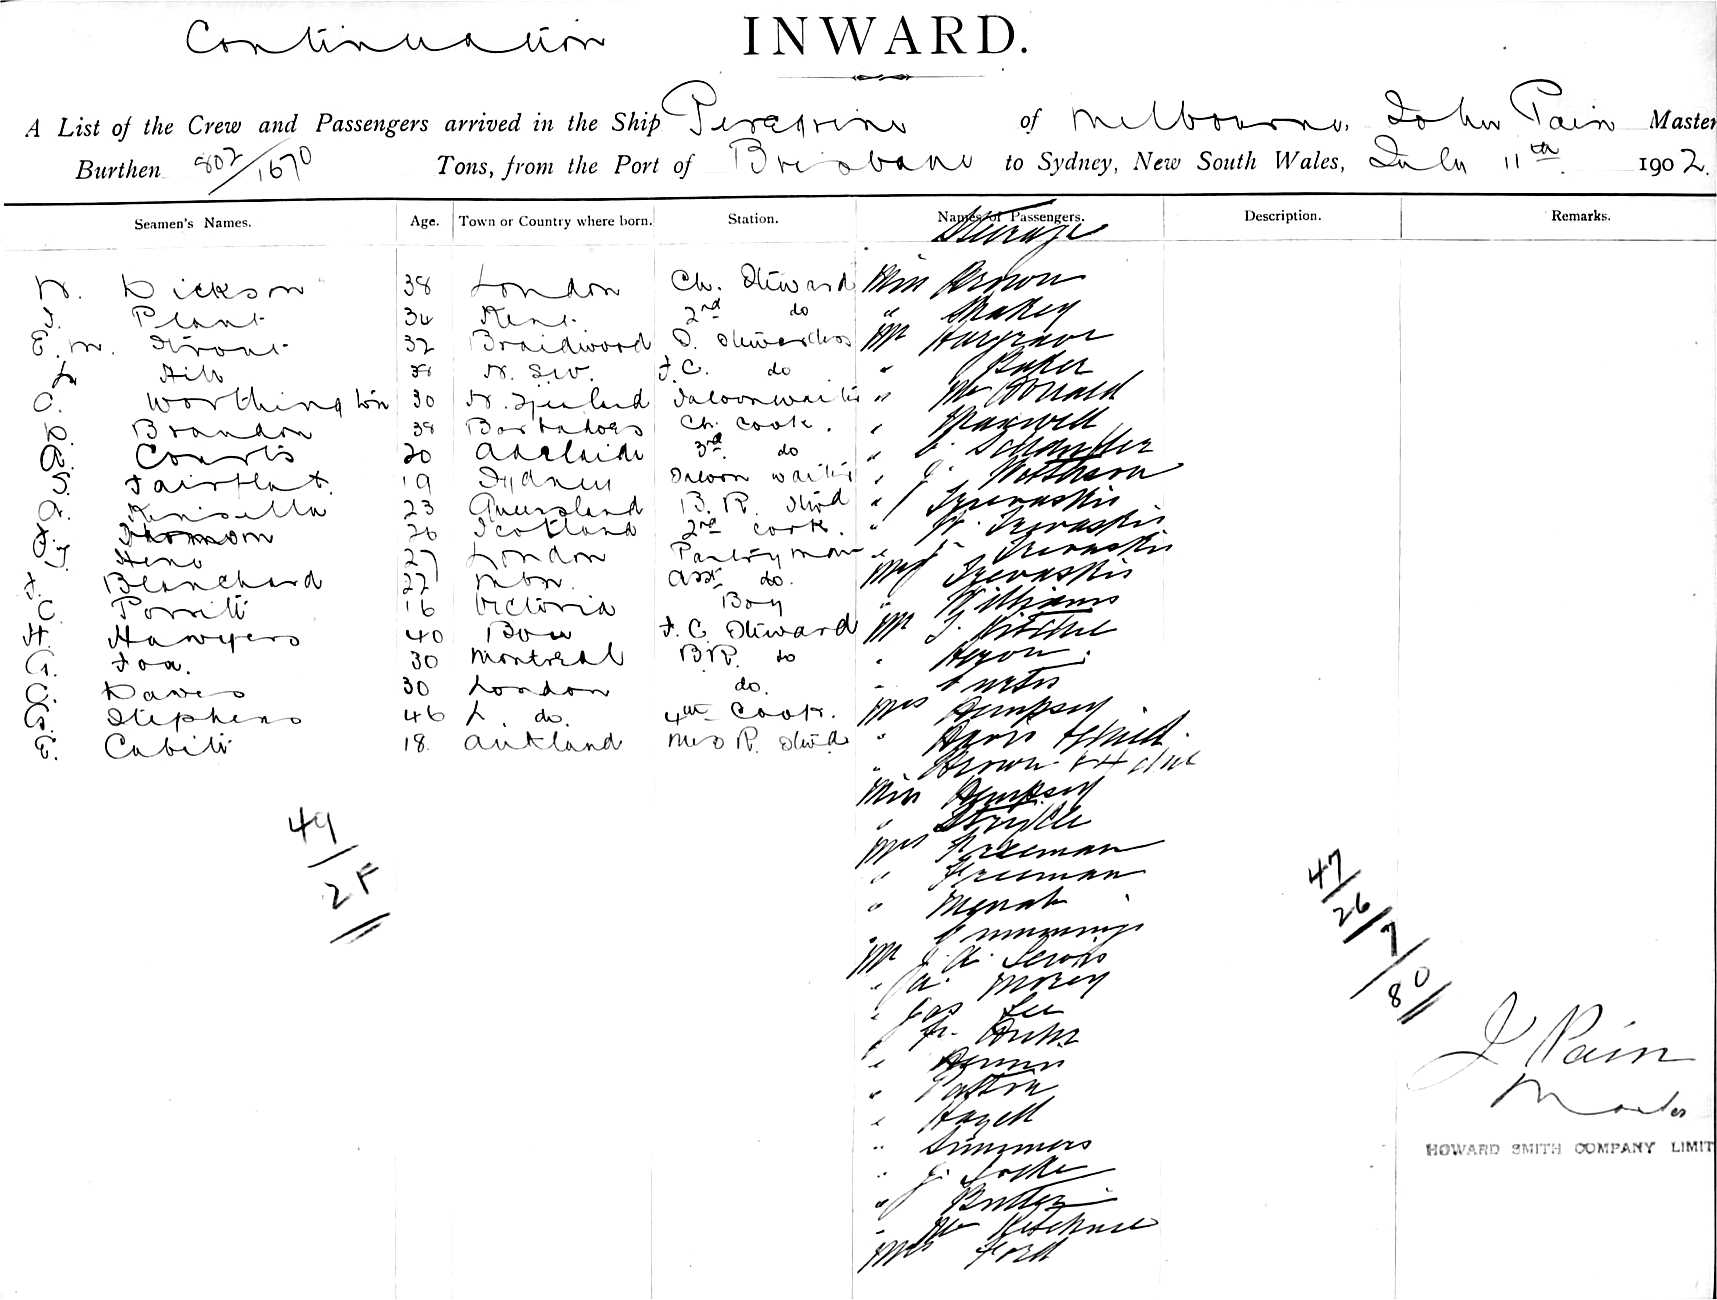 Continuation INWARD.
A List of the Crew and Passengers arrived in the Ship Peregrine of Melbourne, John Pain Master
Burthen 802/1670 Tons, from the Port of Brisbane to Sydney, New South Wales, July 11th 1902.
Seamen's Names. Age. Town or Country where born. Station. Names of Passengers. Description. Remarks.
Steerage
N. Dickson 38 London Ch. Steward Miss Brown
Plant 34 Kent 2nd do "
E. M. 32 Braidwood Stewardess Mr Hargrave
Hill N. S. W. F. C. do " Baker
C. Worthington 30 N. Zealand Saloon waiter " McDonald
Brandon 38 Barbadoes Ch. Cook. " Maxwell
Courts 20 Adelaide 3rd do "
S. Fairflat 19 Sydney Saloon waiter " J.
Kinsella 23 Queensland B. R. Stwd " Trevaskis
26 Scotland 2nd Cook. " W. Trevaskis
27 London Pantryman " J. Trevaskis
F. Blanchard 22 Mbn. Asst do. Mrs Trevaskis
C. Porritt 16 Victoria Boy " Williams
H. Hawyers 40 Bow F. C. Steward Mr J. Ritchie
G. Foa. 30 Montreal B. R. do "
C. Daves 30 London do. " Curtis
G. Stephens 46 L. do. 4th Cook. Mrs Dempsey
E. Cubitt 18 Auckland Mess R. Stwd " Davis & Child.
" Brown & 4 chil
Miss Dempsey
"
Mrs Freeman
" Freeman
"
" Cummings
Mr J. A. Lewis
" A. Morey
" Jas Lee
" Fr.
" Dennis
" Patton
" Hazell
" Simmers
" J. Locke
" Butler
"
Mrs Ford
49/2F
47/26/7/80
J Pain
Master
HOWARD SMITH COMPANY LIMIT